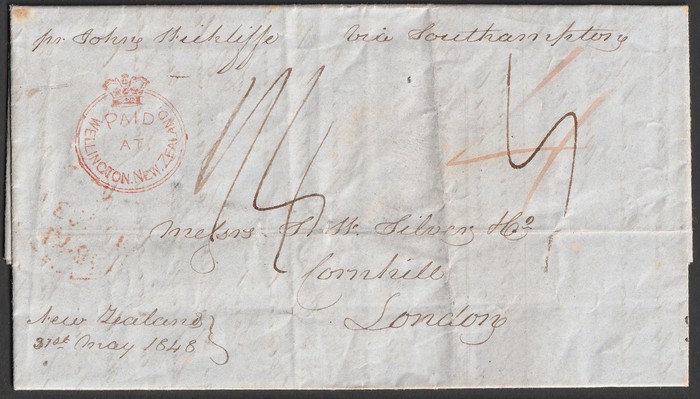 pr Johns Wickliffe via Southampton
PAID
AT
WELLINGTON. NEW. ZEALAND.
4
Messrs S. W. Silver & Co
Cornhill
London
New Zealand
31st May 1848